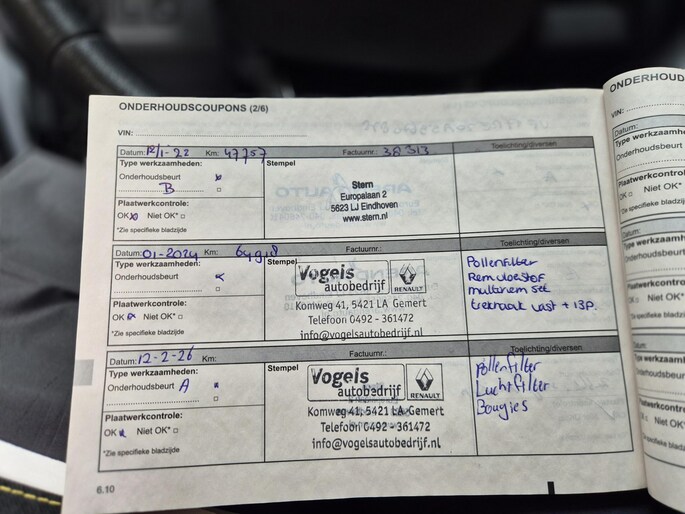 ONDERHOUDSCOUPONS (2/6)
VIN:
Datum: Km: 47757 Factuurnr.: 38313 Toelichting/diversen
Type werkzaamheden: Stempel
Onderhoudsbeurt x
B
Plaatwerkcontrole:
OK x Niet OK*
*Zie specifieke bladzijde
Stern
Europalaan 2
5623 LJ Eindhoven
www.stern.nl
Datum: 01-2024 Km: Factuurnr.: Toelichting/diversen
Type werkzaamheden: Stempel
Onderhoudsbeurt x
Plaatwerkcontrole:
OK x Niet OK*
*Zie specifieke bladzijde
Vogels
autobedrijf
RENAULT
Komweg 41, 5421 LA Gemert
Telefoon 0492 - 361472
info@vogelsautobedrijf.nl
Pollenfilter
Remvloestof
multiriem set
trekhaak vast + 13P.
Datum: 12-2-26 Km: Factuurnr.: Toelichting/diversen
Type werkzaamheden: Stempel
Onderhoudsbeurt A x
Plaatwerkcontrole:
OK x Niet OK*
*Zie specifieke bladzijde
Vogels
autobedrijf
RENAULT
Komweg 41, 5421 LA Gemert
Telefoon 0492 - 361472
info@vogelsautobedrijf.nl
pollenfilter
Luchtfilter
Bougies
6.10
ONDERHOUD
VIN:
Datum:
Type werkzaamhe
Onderhoudsbeurt
Plaatwerkcontrol
OK Niet OK*
*Zie specifieke bla
Datum: